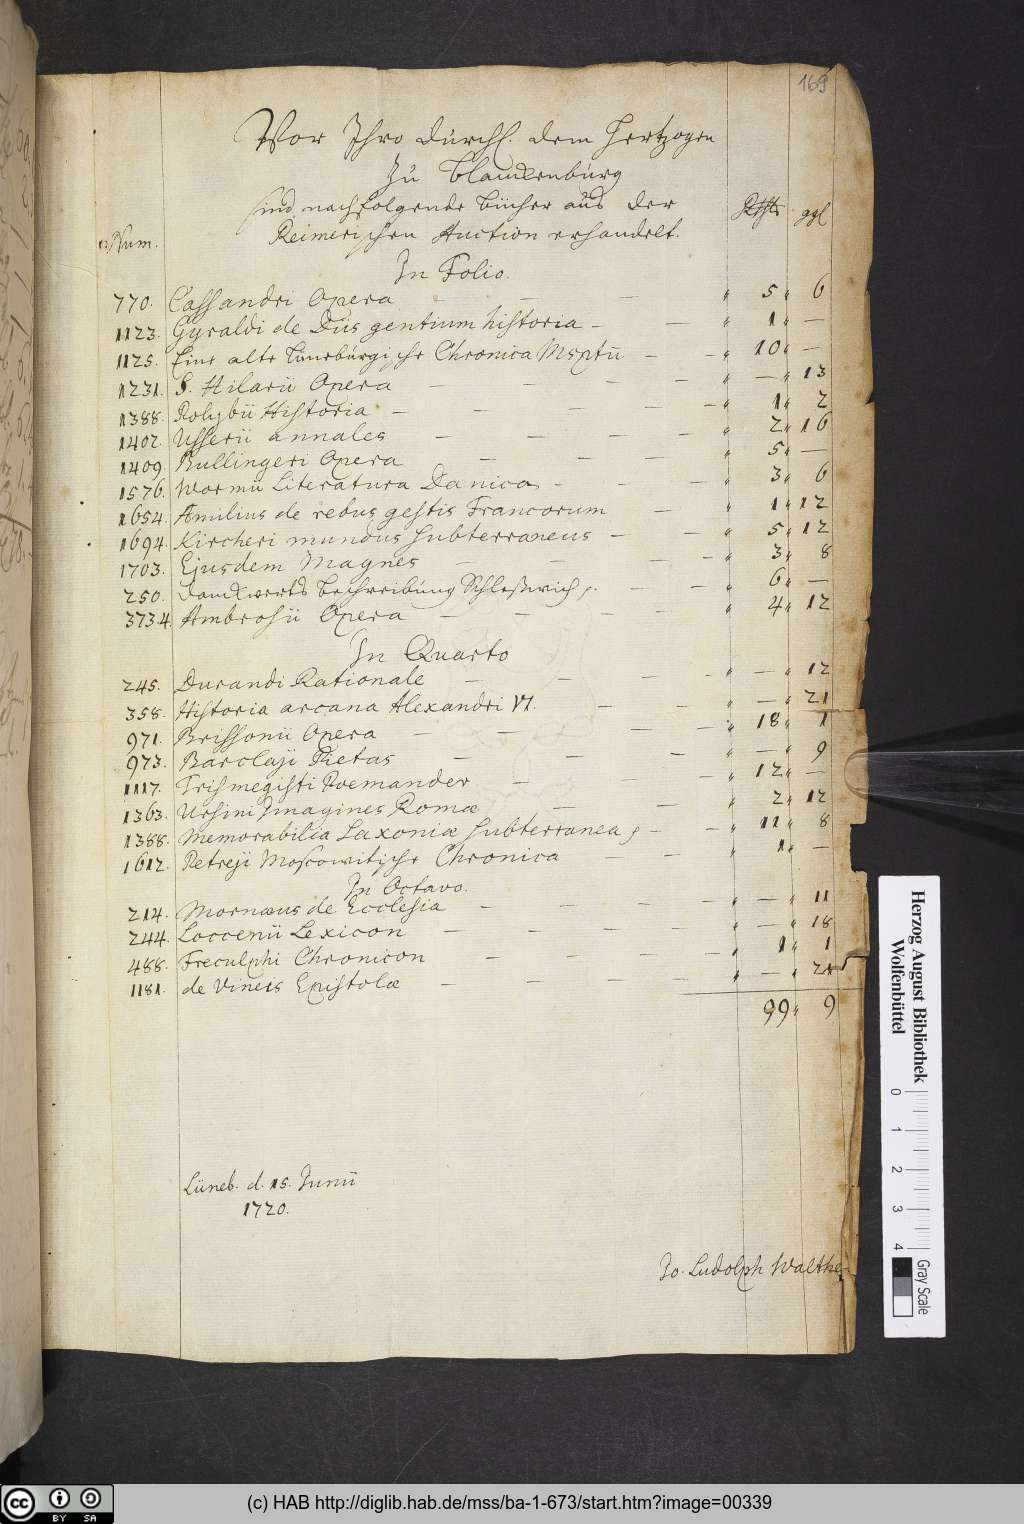 169
Vor Ihro Durchl. dem Hertzogen
Zu Blanckenburg
sind nachfolgende Bücher aus der
Reimerischen Auction erhandelt.
Num. Rthlr ggl
In Folio.
770. Cassandri Opera — — — " 5 " 6
1123. Gyraldi de Diis gentium historia — — " 1 " —
1125. Eine alte Lüneburgische Chronica Msptū — — " 10 " —
1231. S. Hilarii Opera — — — — " — " 13
1388. Polybii Historia — — — — " 1 " 2
1407. Usserii annales — — — — " 2 " 16
1409. Bullingeri Opera — — — " 5 " —
1576. Wormii Literatura Danica — — — " 3 " 6
1654. Æmilius de rebus gestis Francorum — " 1 " 12
1694. Kircheri mundus subterraneus — — " 5 " 12
1703. Ejusdem Magnes — — — — " 3 " 8
250. Danckwerts Beschreibung Schleßwich — — " 6 " —
3734. Ambrosii Opera — — — — " 4 " 12
In Quarto
245. Durandi Rationale — — — — " — " 12
358. Historia arcana Alexandri VI. — — " — " 21
971. Brissonii Opera — — — — " 18 " 1
973. Barclaji Pietas — — — " — " 9
1117. Trismegisti Poemander — — — — " 12 " —
1363. Ursini Imagines Romæ — — " 2 " 12
1388. Memorabilia Saxoniæ subterranea — — " 11 " 8
1612. Petreji Moscowitische Chronica — — " 1 " —
In Octavo.
214. Mornæus de Ecclesia — — — — " — " 11
244. Loccenii Lexicon — — — — " — " 18
488. Freculphi Chronicon — — — — " 1 " 1
1181. de Vineis Epistolæ — — — — " — " 21
99 " 9
Lüneb. d. 15. Junii
1720.
Jo. Ludolph Walther
Herzog August Bibliothek
Wolfenbüttel
0 1 2 3 4
Gray Scale
cc BY SA
(c) HAB http://diglib.hab.de/mss/ba-1-673/start.htm?image=00339